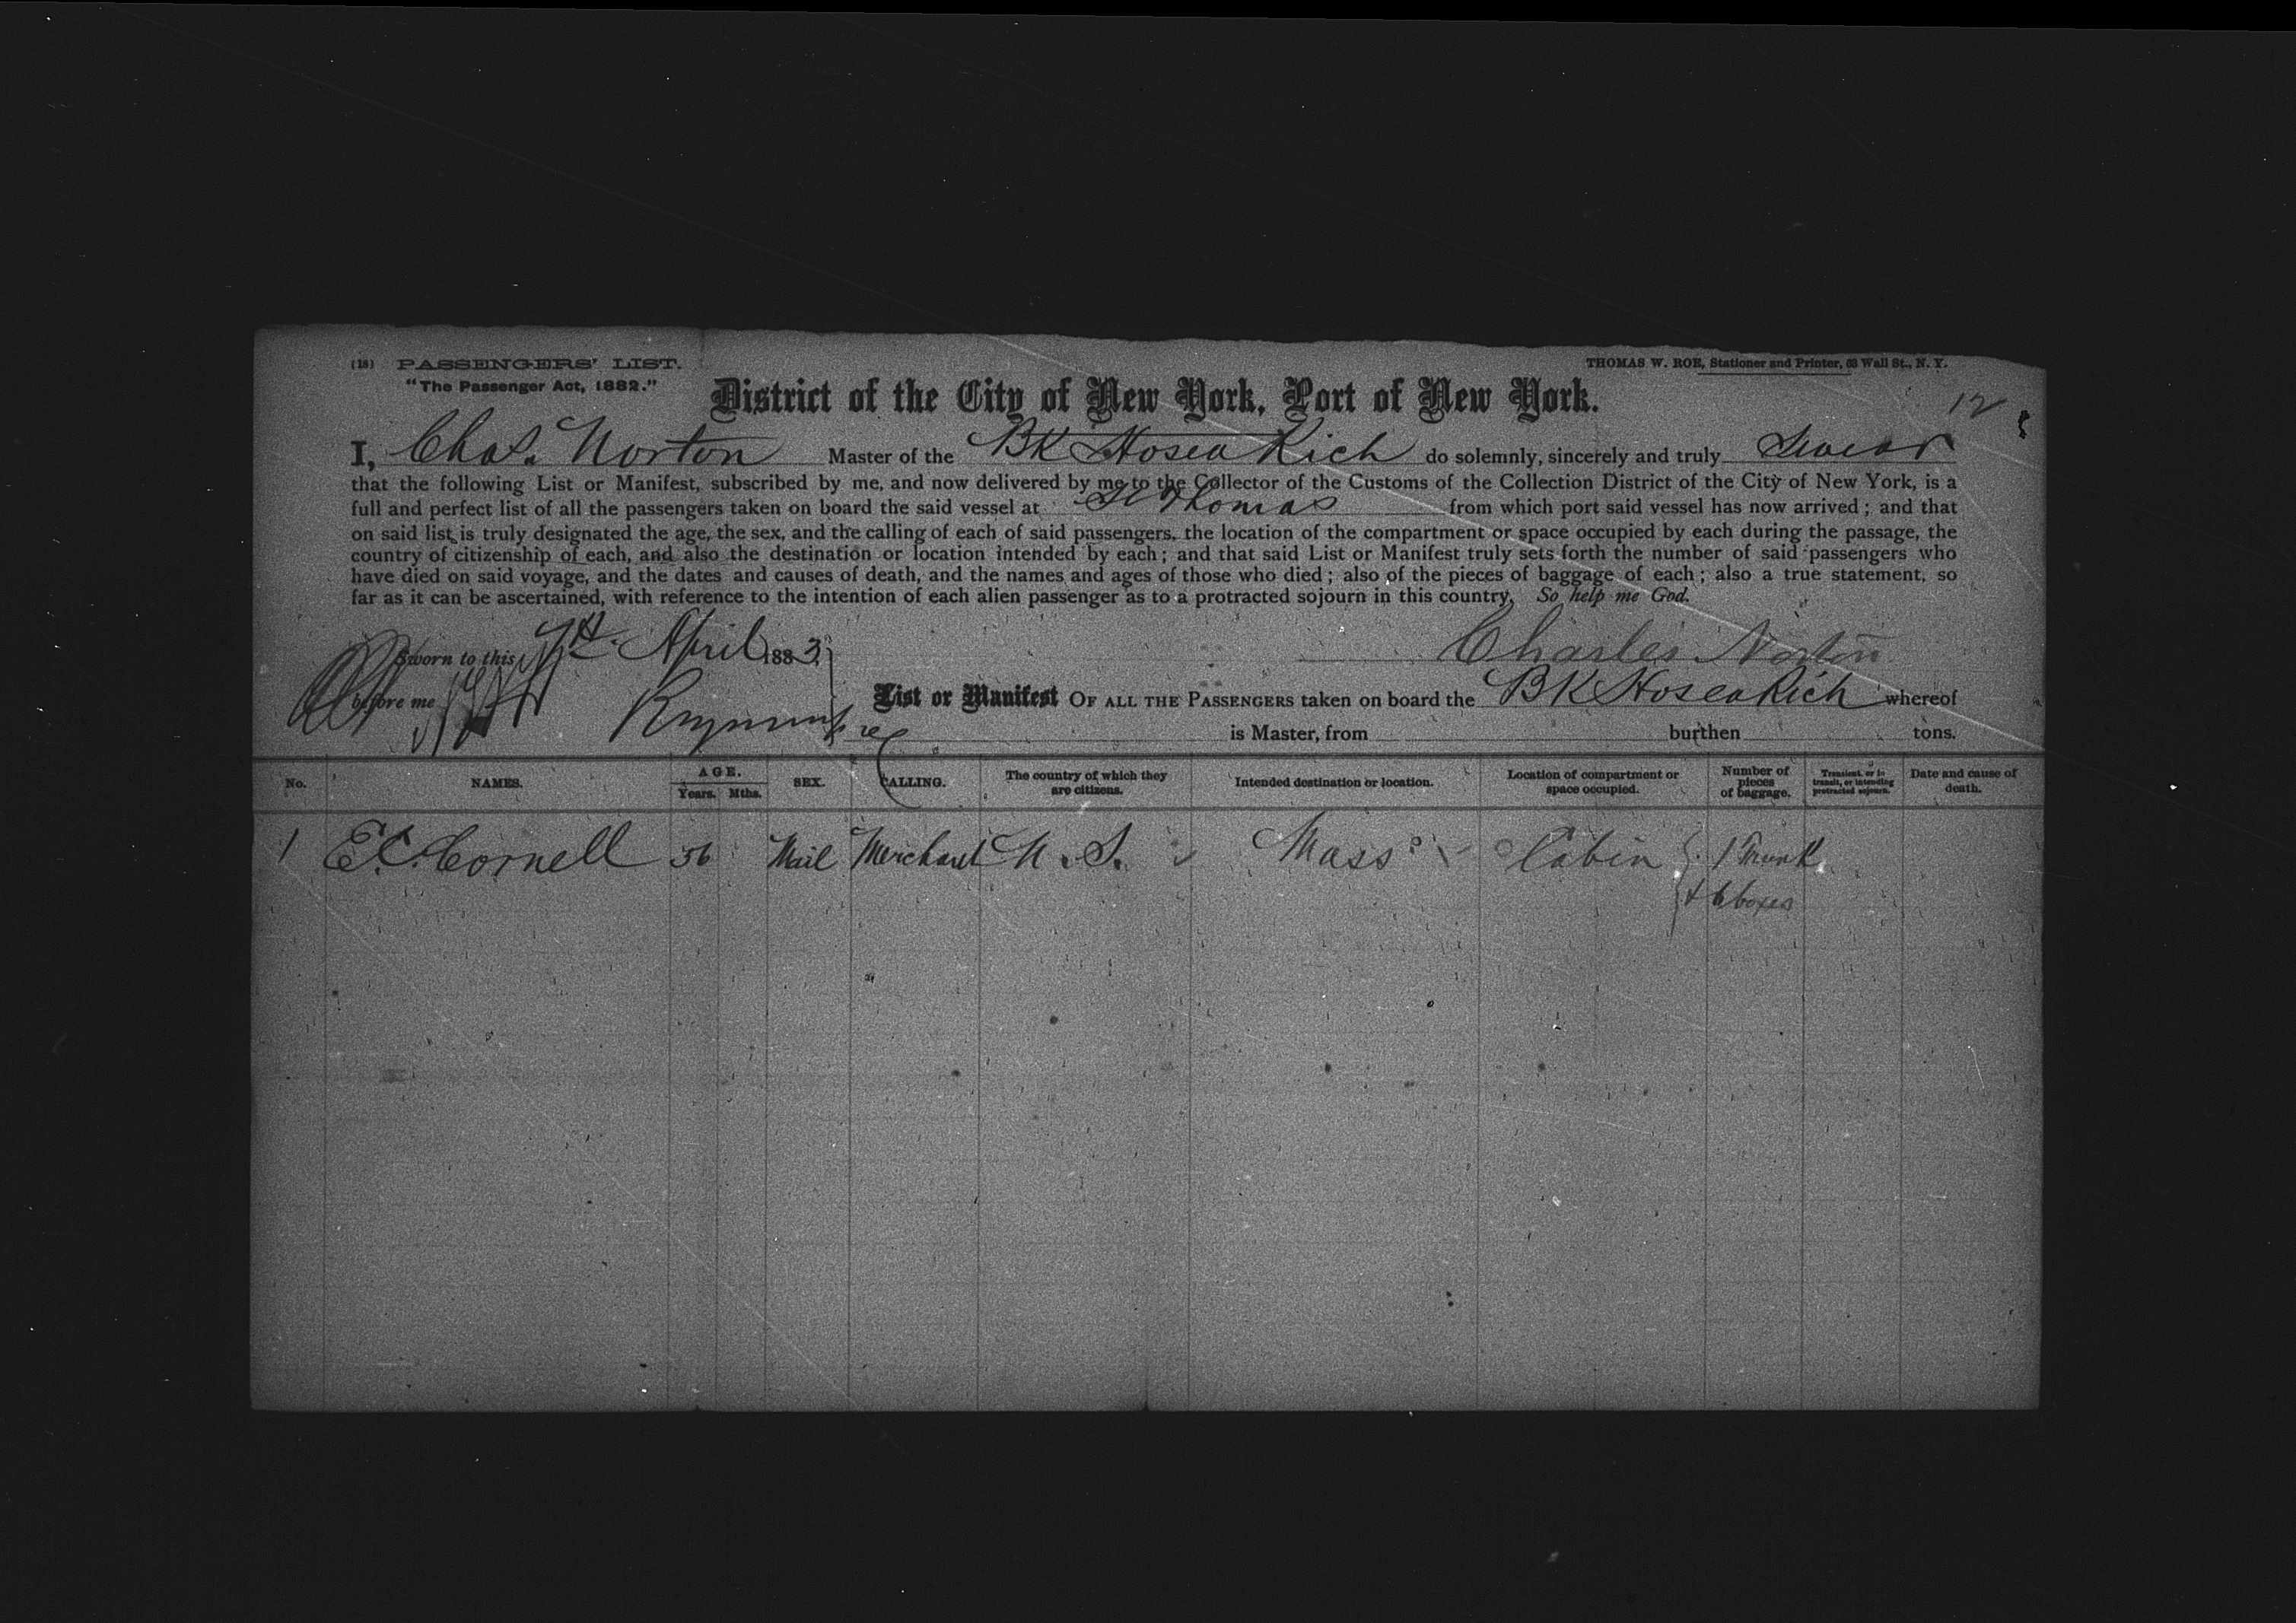 (18) PASSENGERS' LIST.
THOMAS W. ROE, Stationer and Printer, 63 Wall St., N. Y.
"The Passenger Act, 1882."
District of the City of New York, Port of New York.
12
I, Chas. Norton Master of the BK Hosea Rich do solemnly, sincerely and truly Swear
that the following List or Manifest, subscribed by me, and now delivered by me to the Collector of the Customs of the Collection District of the City of New York, is a
full and perfect list of all the passengers taken on board the said vessel at St Thomas from which port said vessel has now arrived; and that
on said list is truly designated the age, the sex, and the calling of each of said passengers, the location of the compartment or space occupied by each during the passage, the
country of citizenship of each, and also the destination or location intended by each; and that said List or Manifest truly sets forth the number of said passengers who
have died on said voyage, and the dates and causes of death, and the names and ages of those who died; also of the pieces of baggage of each; also a true statement, so
far as it can be ascertained, with reference to the intention of each alien passenger as to a protracted sojourn in this country. So help me God.
Sworn to this 7th April 1883. Charles Norton
before me
List or Manifest OF ALL THE PASSENGERS taken on board the BK Hosea Rich whereof
is Master, from burthen tons.
No. NAMES. AGE. Years. Mths. SEX. CALLING. The country of which they are citizens. Intended destination or location. Location of compartment or space occupied. Number of pieces of baggage. Transient, or in transit, or intending protracted sojourn. Date and cause of death.
1 E.C. Cornell 56 Mail Merchant U.S. Mass Cabin 1 Trunk
& 6 boxes